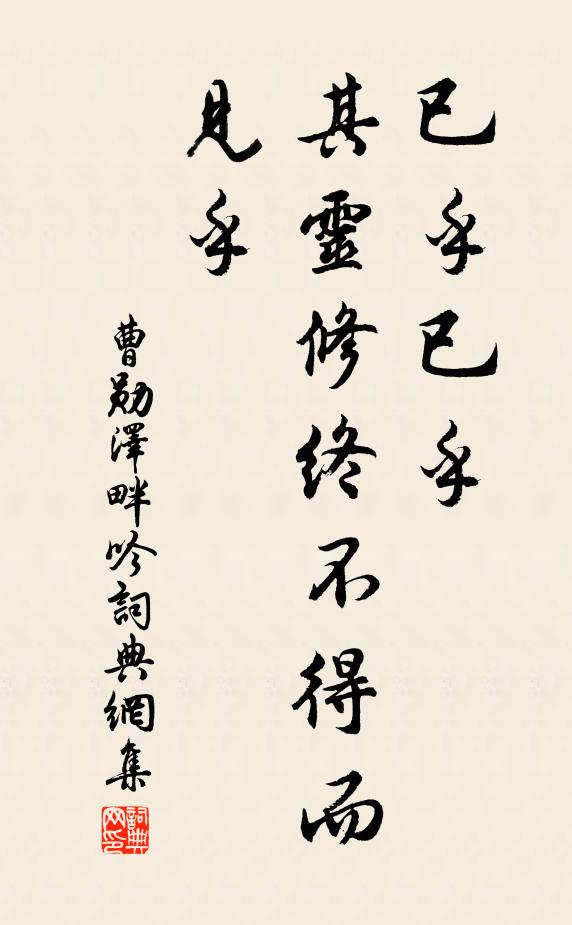 已乎已乎
其靈修終不得而
見乎
曹勛澤畔吟詞典網集
詞典網印